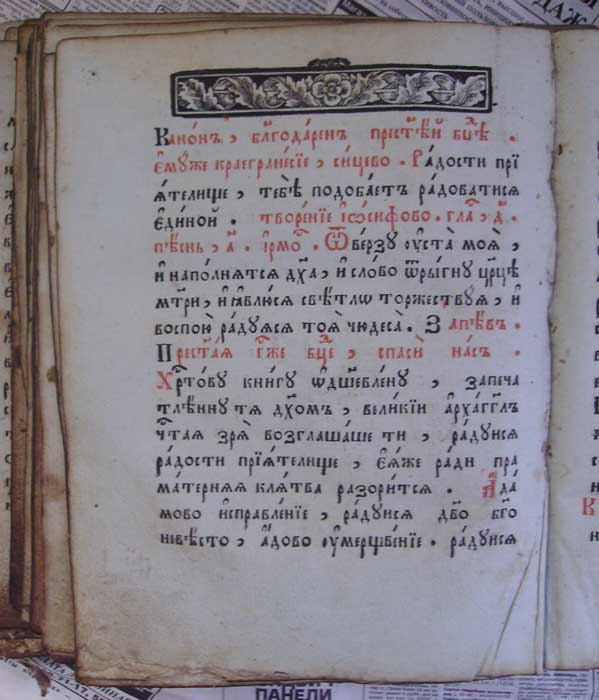 Канѡ́нъ, блг҃одаренъ прест҃ѣй бц҃ѣ.
Є҆мꙋже краегранесїе, сицево. Ра́дости прїѧ́
ѧ҆телище, тебѣ̀ подоба́етъ ра́доватисѧ
є҆ди́ной. творе́нїе і҆ѡ́сифово. гла́, а҃.
пѣ́снь, а҃. і҆рмо́. Ѿве́рзꙋ ᲂу҆ста̀ моѧ̀,
и҆ напо́лнѧтсѧ дх҃а, и҆ сло́во ѿры́гнꙋ цр҃цѣ
мт҃ри, и҆ ꙗ҆влю́сѧ свѣ́тлѡ торжествꙋ́ѧ, и҆
воспою̀ ра́дꙋѧсѧ тоѧ̀ чюдеса̀. Запѣ́въ.
Прест҃а́ѧ гж҃е бц҃е, спасѝ на́съ.
Хр҃то́вꙋ кни́гꙋ ѡ҆дш҃евле́нꙋ, запеча
тлѣ́ннꙋ тѧ дх҃омъ, вели́кїи а҆рха́гг҃лъ
чт҃аѧ зрѧ̀ возглаша́ше ти, ра́дꙋисѧ
ра́дости прїѧ́телище, є҆ѧ́же ра́ди пра
ма́тернѧѧ клѧ́тва разори́тсѧ. А҆да́
мово и҆справле́нїе, ра́дꙋисѧ дв҃о бг҃о
невѣ́сто, а҆́дово ᲂу҆мерщвє́нїе. ра́дꙋисѧ